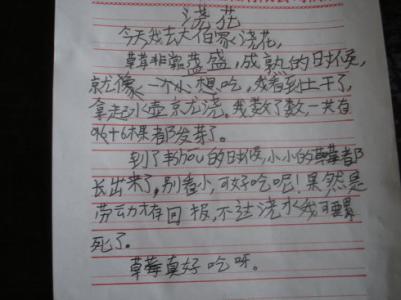 浇花
今天我去大伯家浇花,
草莓非常茂盛,成熟的时候,
就像一个小 想吃,我看到土干了,
拿起水壶就浇。我数了数,一共有
96+6棵都发芽了。
到了 的时候,小小的草莓都
长出来了,别看小,可好吃呢!果然是
劳动才有回报,不过浇水我可累
死了。
草莓真好吃呀。